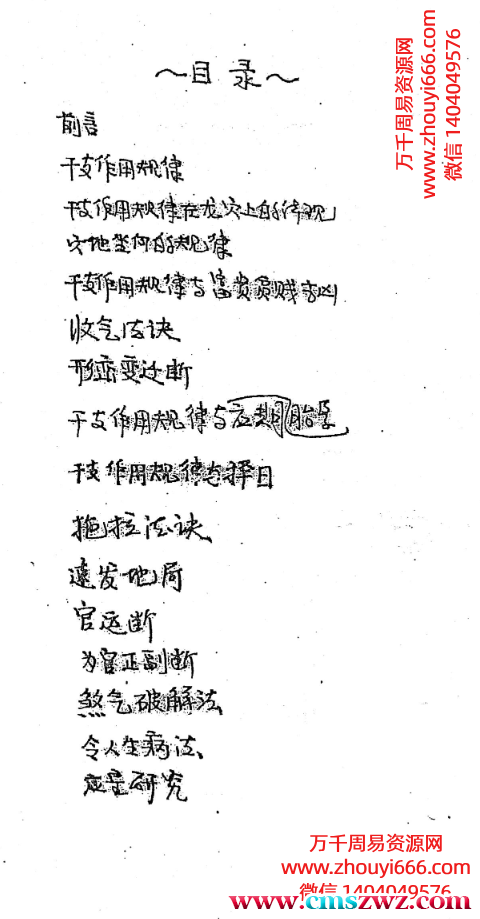 ~目录~
万千周易资源网
www.zhouyi666.com
微信 1404049576
前言
干支作用规律
干支作用规律在龙穴上的体现
穴地坐向的规律
干支作用规律与富贵贫贱吉凶
收气法诀
形峦变迁断
干支作用规律与应期胎孕
干支作用规律与择日
拖拉法诀
速发地局
官运断
为官正副断
煞气破解法
令人生病法
研究
万千周易资源网
www.zhouyi666.com
微信 1404049576
www.cmszwz.com